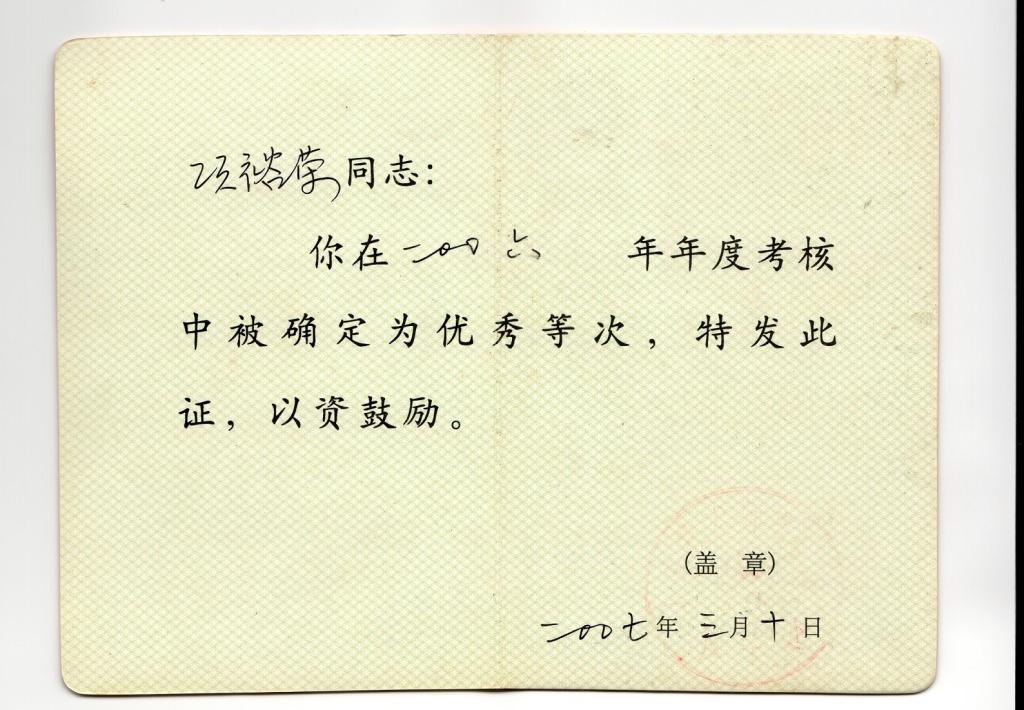 项裕荣同志：
你在二〇〇六 年年度考核
中被确定为优秀等次，特发此
证，以资鼓励。
（盖 章）
二〇〇七年 三月十日